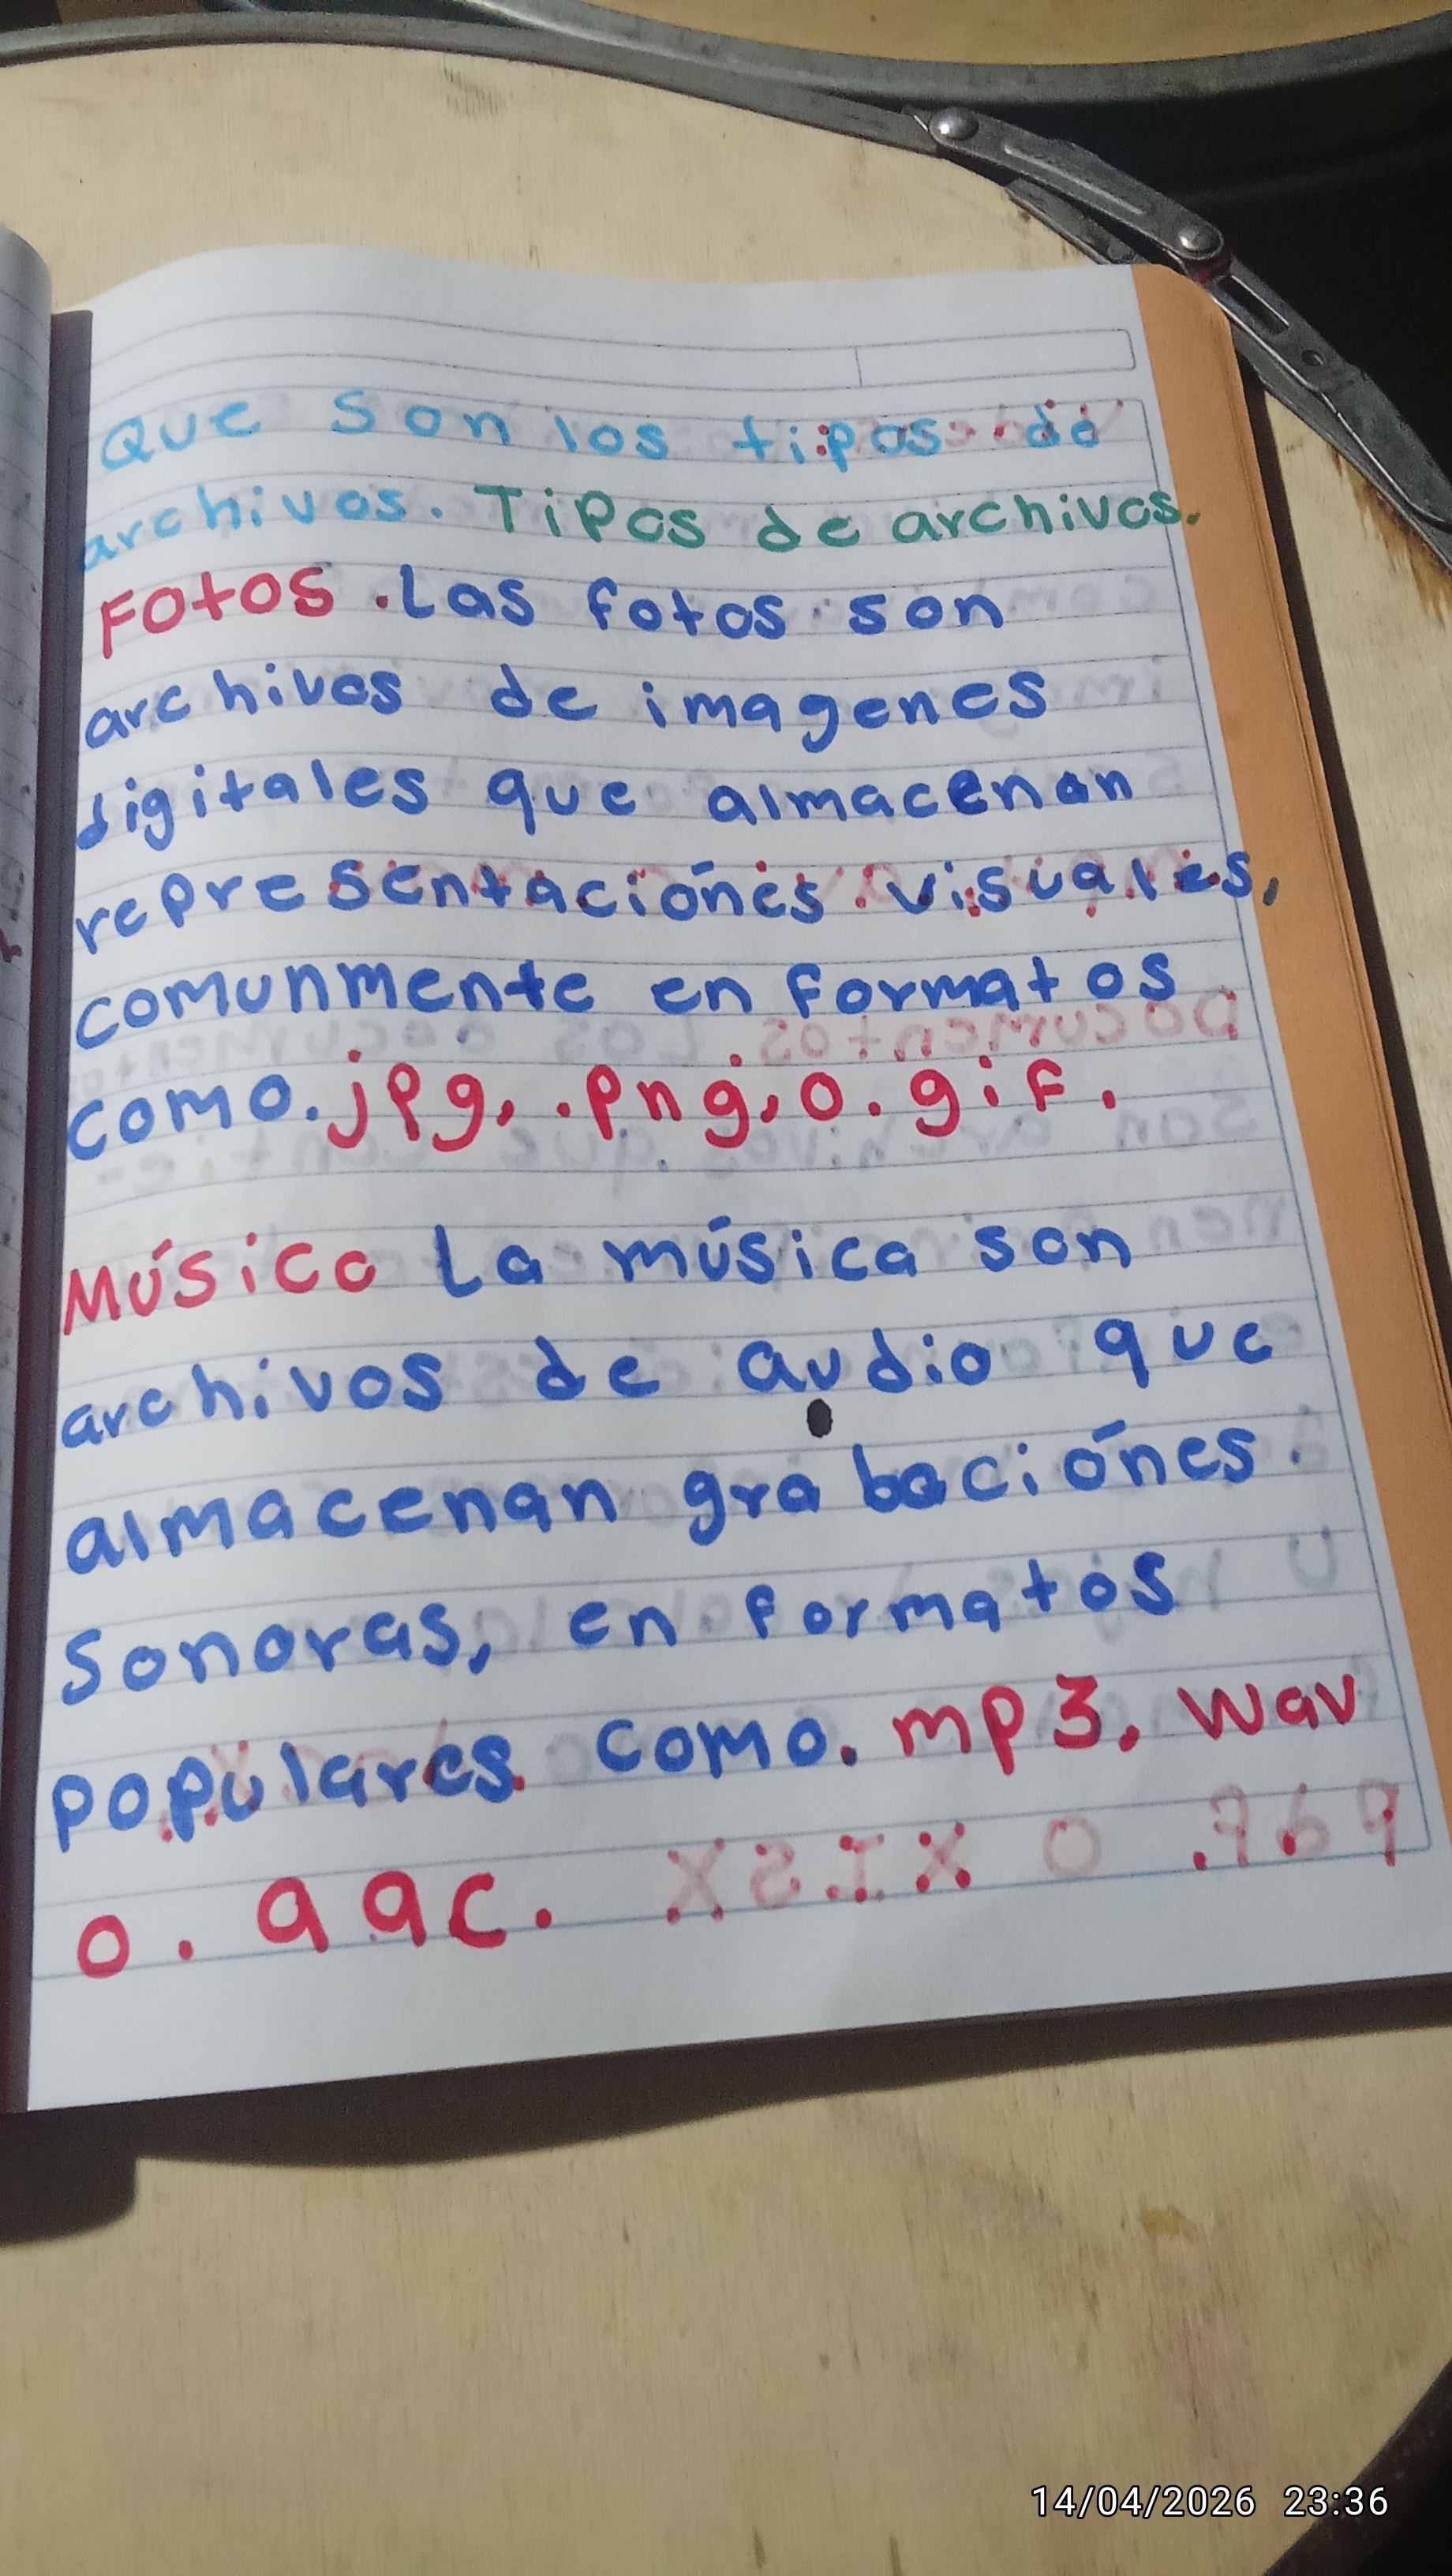 Que son los tipos de
archivos. Tipos de archivos.
Fotos. Las fotos son
archivos de imagenes
digitales que almacenan
representaciónes visuales,
comunmente en formatos
como. jpg, .png, o. gif.
Música La música son
archivos de audio que
almacenan grabaciónes
sonoras, en formatos
populares como. mp3, wav
o. aac.
14/04/2026 23:36